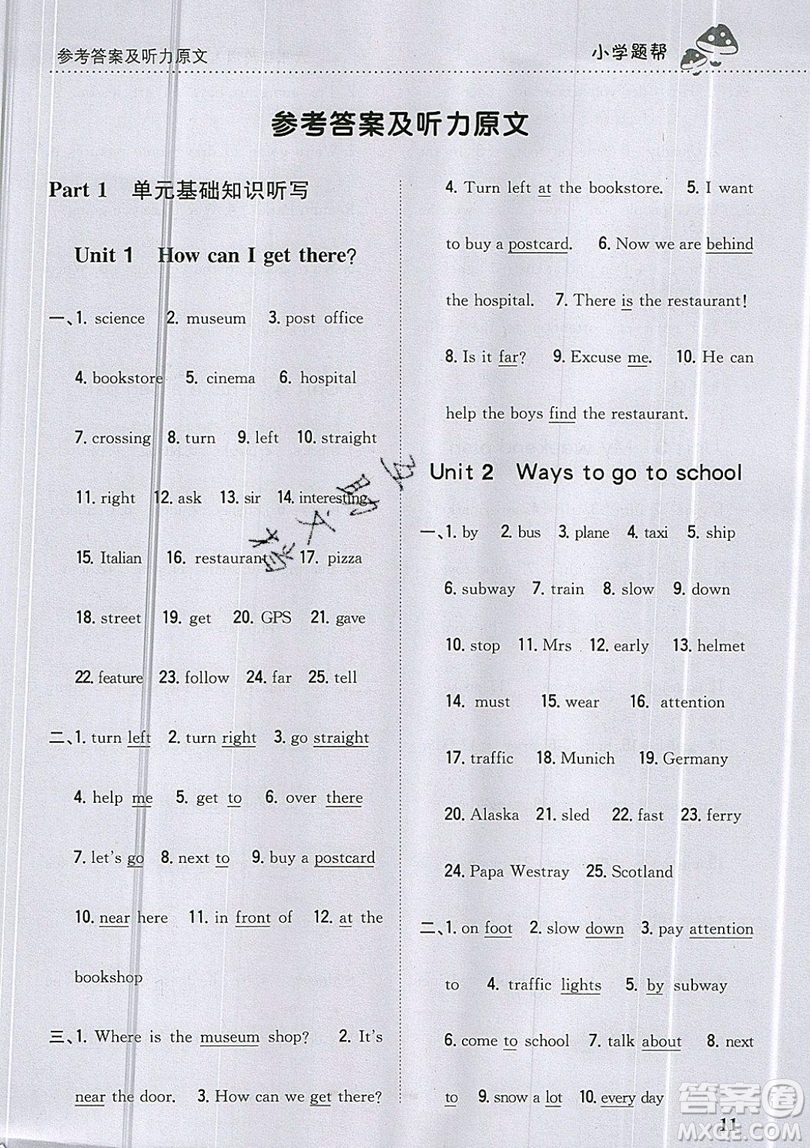 参考答案及听力原文
小学题帮
参考答案及听力原文
Part 1 单元基础知识听写
Unit 1 How can I get there?
一、1. science 2. museum 3. post office
4. bookstore 5. cinema 6. hospital
7. crossing 8. turn 9. left 10. straight
11. right 12. ask 13. sir 14. interesting
15. Italian 16. restaurant 17. pizza
18. street 19. get 20. GPS 21. gave
22. feature 23. follow 24. far 25. tell
二、1. turn left 2. turn right 3. go straight
4. help me 5. get to 6. over there
7. let's go 8. next to 9. buy a postcard
10. near here 11. in front of 12. at the
bookshop
三、1. Where is the museum shop? 2. It's
near the door. 3. How can we get there?
4. Turn left at the bookstore. 5. I want
to buy a postcard. 6. Now we are behind
the hospital. 7. There is the restaurant!
8. Is it far? 9. Excuse me. 10. He can
help the boys find the restaurant.
Unit 2 Ways to go to school
一、1. by 2. bus 3. plane 4. taxi 5. ship
6. subway 7. train 8. slow 9. down
10. stop 11. Mrs 12. early 13. helmet
14. must 15. wear 16. attention
17. traffic 18. Munich 19. Germany
20. Alaska 21. sled 22. fast 23. ferry
24. Papa Westray 25. Scotland
二、1. on foot 2. slow down 3. pay attention
to 4. traffic lights 5. by subway
6. come to school 7. talk about 8. next
to 9. snow a lot 10. every day
11
答案圈
MXQE.COM